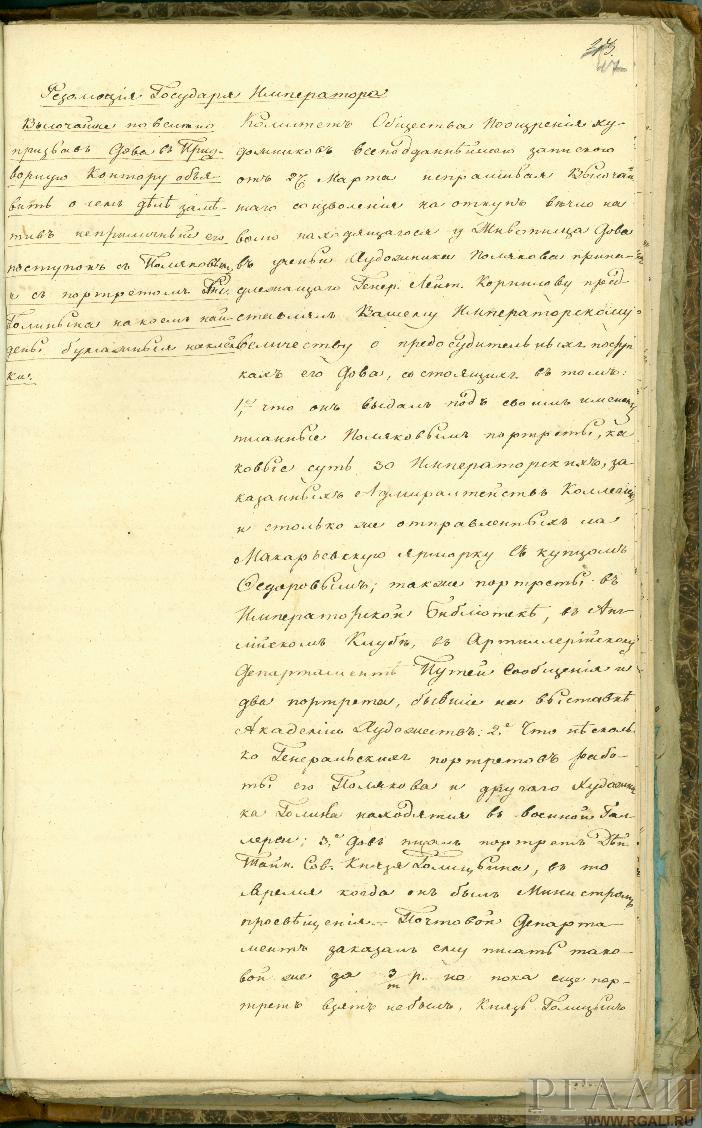 47
Резолюція Государя Императора
Высочайше повелено
призвавъ Дова въ Прид-
ворную Контору объя-
вить о чемъ дѣлѣ замѣ-
тивъ неприличный его
поступокъ съ Поляковымъ
и съ портретомъ Кн.
Голицына на коемъ най-
дены бумажныя наклей-
ки.
Комитетъ Общества Поощренія ху-
дожниковъ всеподданнѣйшею запискою
отъ 27 Марта испрашивая Высочай
шаго соизволенія на откупъ вѣчно на
волю находящагося у Живописца Дова
въ ученьи Художника Полякова прина-
длежащаго Генер. Лейт. Корнилову пред
ставлялъ Вашему Императорскому
величеству о предосудительныхъ поступ
кахъ его Дова, состоящихъ въ томъ:
1, что онъ выдалъ подъ своимъ именемъ
писанные Поляковымъ портреты, ка
ковые суть 30 Императорскихъ, за-
казанныхъ Адмиралтействъ Коллегіи
и столько же отправленныхъ на
Макарьевскую Ярмарку съ купцомъ
Федоровымъ; также портреты въ
Императорской Библіотекѣ, въ Анг-
лійскомъ Клубѣ, въ Артиллерійскомъ
Департаментѣ Путей Сообщенія и
два портрета, бывшіе на выставкѣ
Академіи Художествъ: 2. Что нѣсколь-
ко Генеральскихъ портретовъ рабо-
ты его Полякова и другаго Художни
ка Голика находятся въ военной Гал-
лереи; 3, Довъ писалъ портретъ Дѣй
Тайн. Сов. Князя Голицына, въ то
время когда онъ былъ Министромъ
просвѣщенія. Почтовой Департа-
ментъ заказалъ ему писать тако-
вой же за 3 т р. но пока еще пор-
третъ взятъ не былъ, Князь Голицынъ
РГАЛИ
WWW.RGALI.RU